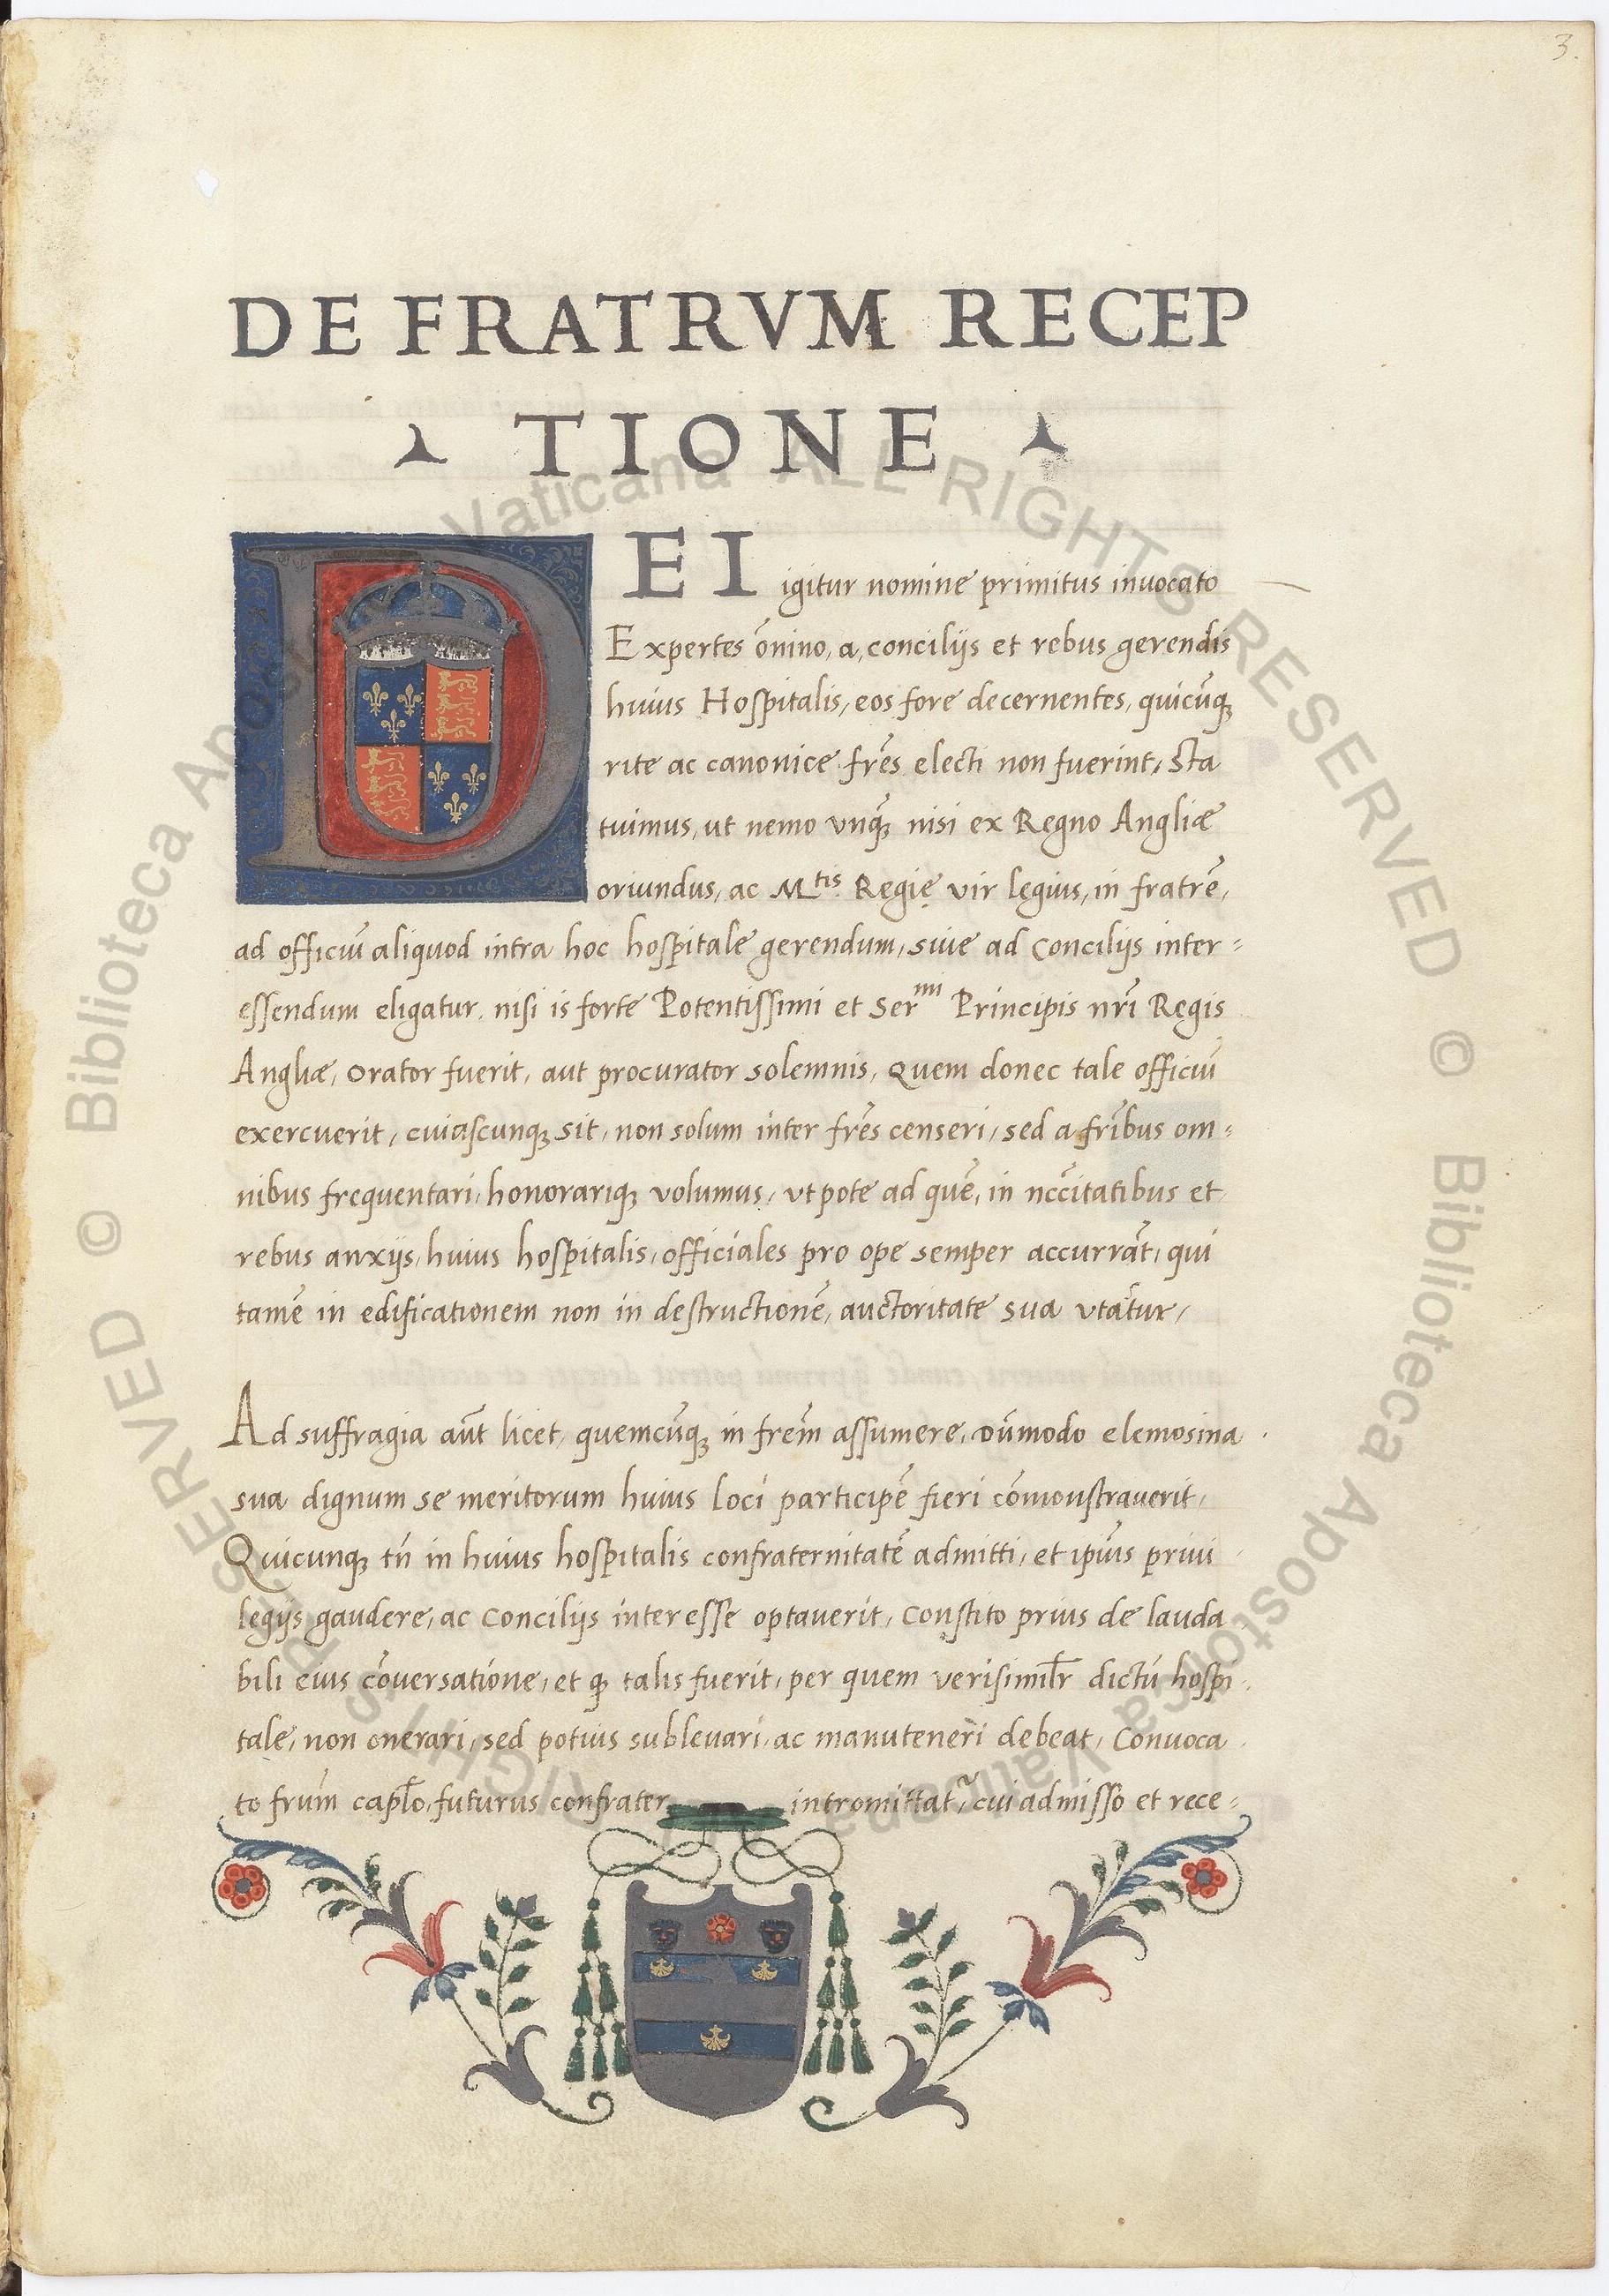 3.
DE FRATRVM RECEP
TIONE
DEI igitur nomine primitus invocato
Expertes õnino, a, concilijs et rebus gerendis
huius Hospitalis, eos fore decernentes, quicũqꝫ
rite ac canonice fr̃es electi non fuerint, Sta
tuimus, ut nemo vnqꝫ nisi ex Regno Angliæ
oriundus, ac Mtis Regię vir legius, in fratrẽ,
ad officiũ aliquod intra hoc hospitale gerendum, sive ad Concilijs inter=
essendum eligatur, nisi is forte Potentissimi et Sermi Principis nr̃i Regis
Angliæ, Orator fuerit, aut procurator solemnis, Quem donec tale officiũ
exercuerit, cuiascunqꝫ sit, non solum inter fr̃es censeri, sed a fr̃ibus om=
nibus frequentari, honorariqꝫ volumus, vtpote ad quẽ, in ncc̃itatibus et
rebus anxijs, huius hospitalis, officiales pro ope semper accurrãt, qui
tamẽ in edificationem non in destructionẽ, auctoritate sua vtãtur,
Ad suffragia aũt licet, quemcũqꝫ in frẽm assumere, dũmodo elemosina
sua dignum se meritorum huius loci participẽ fieri cõmonstraverit,
Quicunqꝫ tñ in huius hospitalis confraternitatẽ admitti, et ip̃ius privi
legijs gaudere, ac Concilijs interesse optaverit, Constito prius de lauda
bili eius cõversatione, et ꝙ talis fuerit, per quem verisimilr̃ dictũ hospi
tale, non onerari, sed potius sublevari, ac manuteneri debeat, Convoca
to fr̃um capl̃o, futurus confrater intromittat᷑, cui admisso et rece=
© Biblioteca Apostolica Vaticana ALL RIGHTS RESERVED © Biblioteca Apostolica Vaticana ALL RIGHTS RESERVED